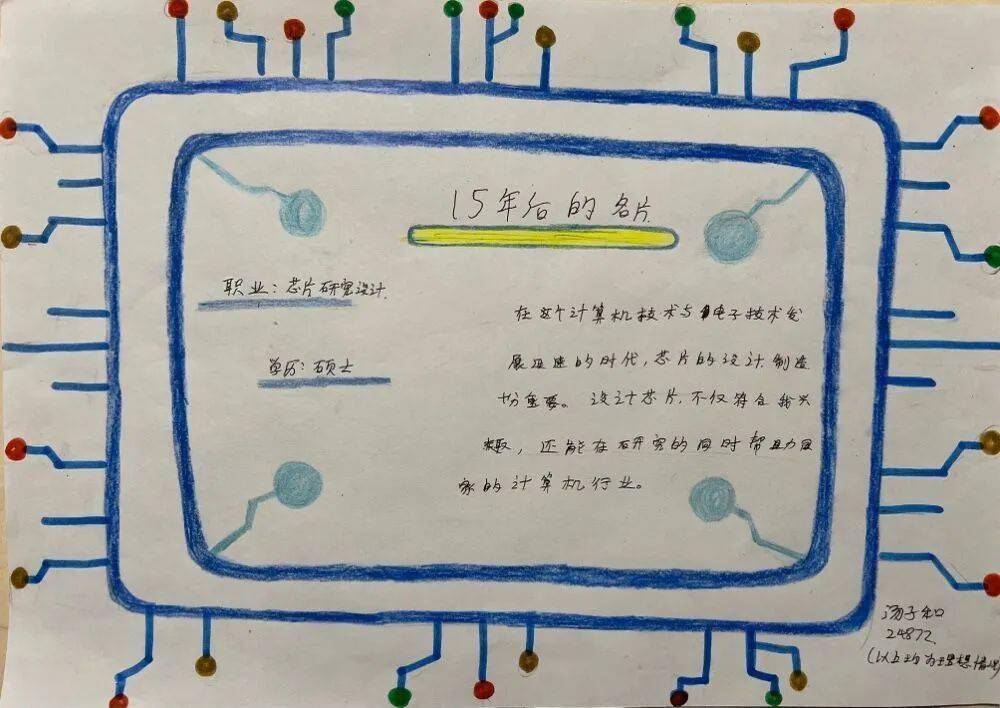 15年后的名片
职业：芯片研究设计
学历：硕士
在这个计算机技术与电子技术发
展迅速的时代，芯片的设计制造
十分重要。设计芯片，不仅符合我兴
趣，还能在研究的同时帮助国
家的计算机行业。
汤子和
24872
(以上均为理想情况